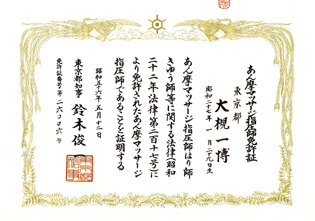 あん摩マッサージ指圧師免許証
東京都
大槻一博
昭和二七年一月二九日生
あん摩マッサージ指圧師はり師
きゆう師等に関する法律(昭和
二十二年法律第二百十七号)に
より免許されたあん摩マッサージ
指圧師であることを証明する
昭和五十六年五月十三日
東京都知事 鈴木俊一
免許証番号第二六三〇〇六号